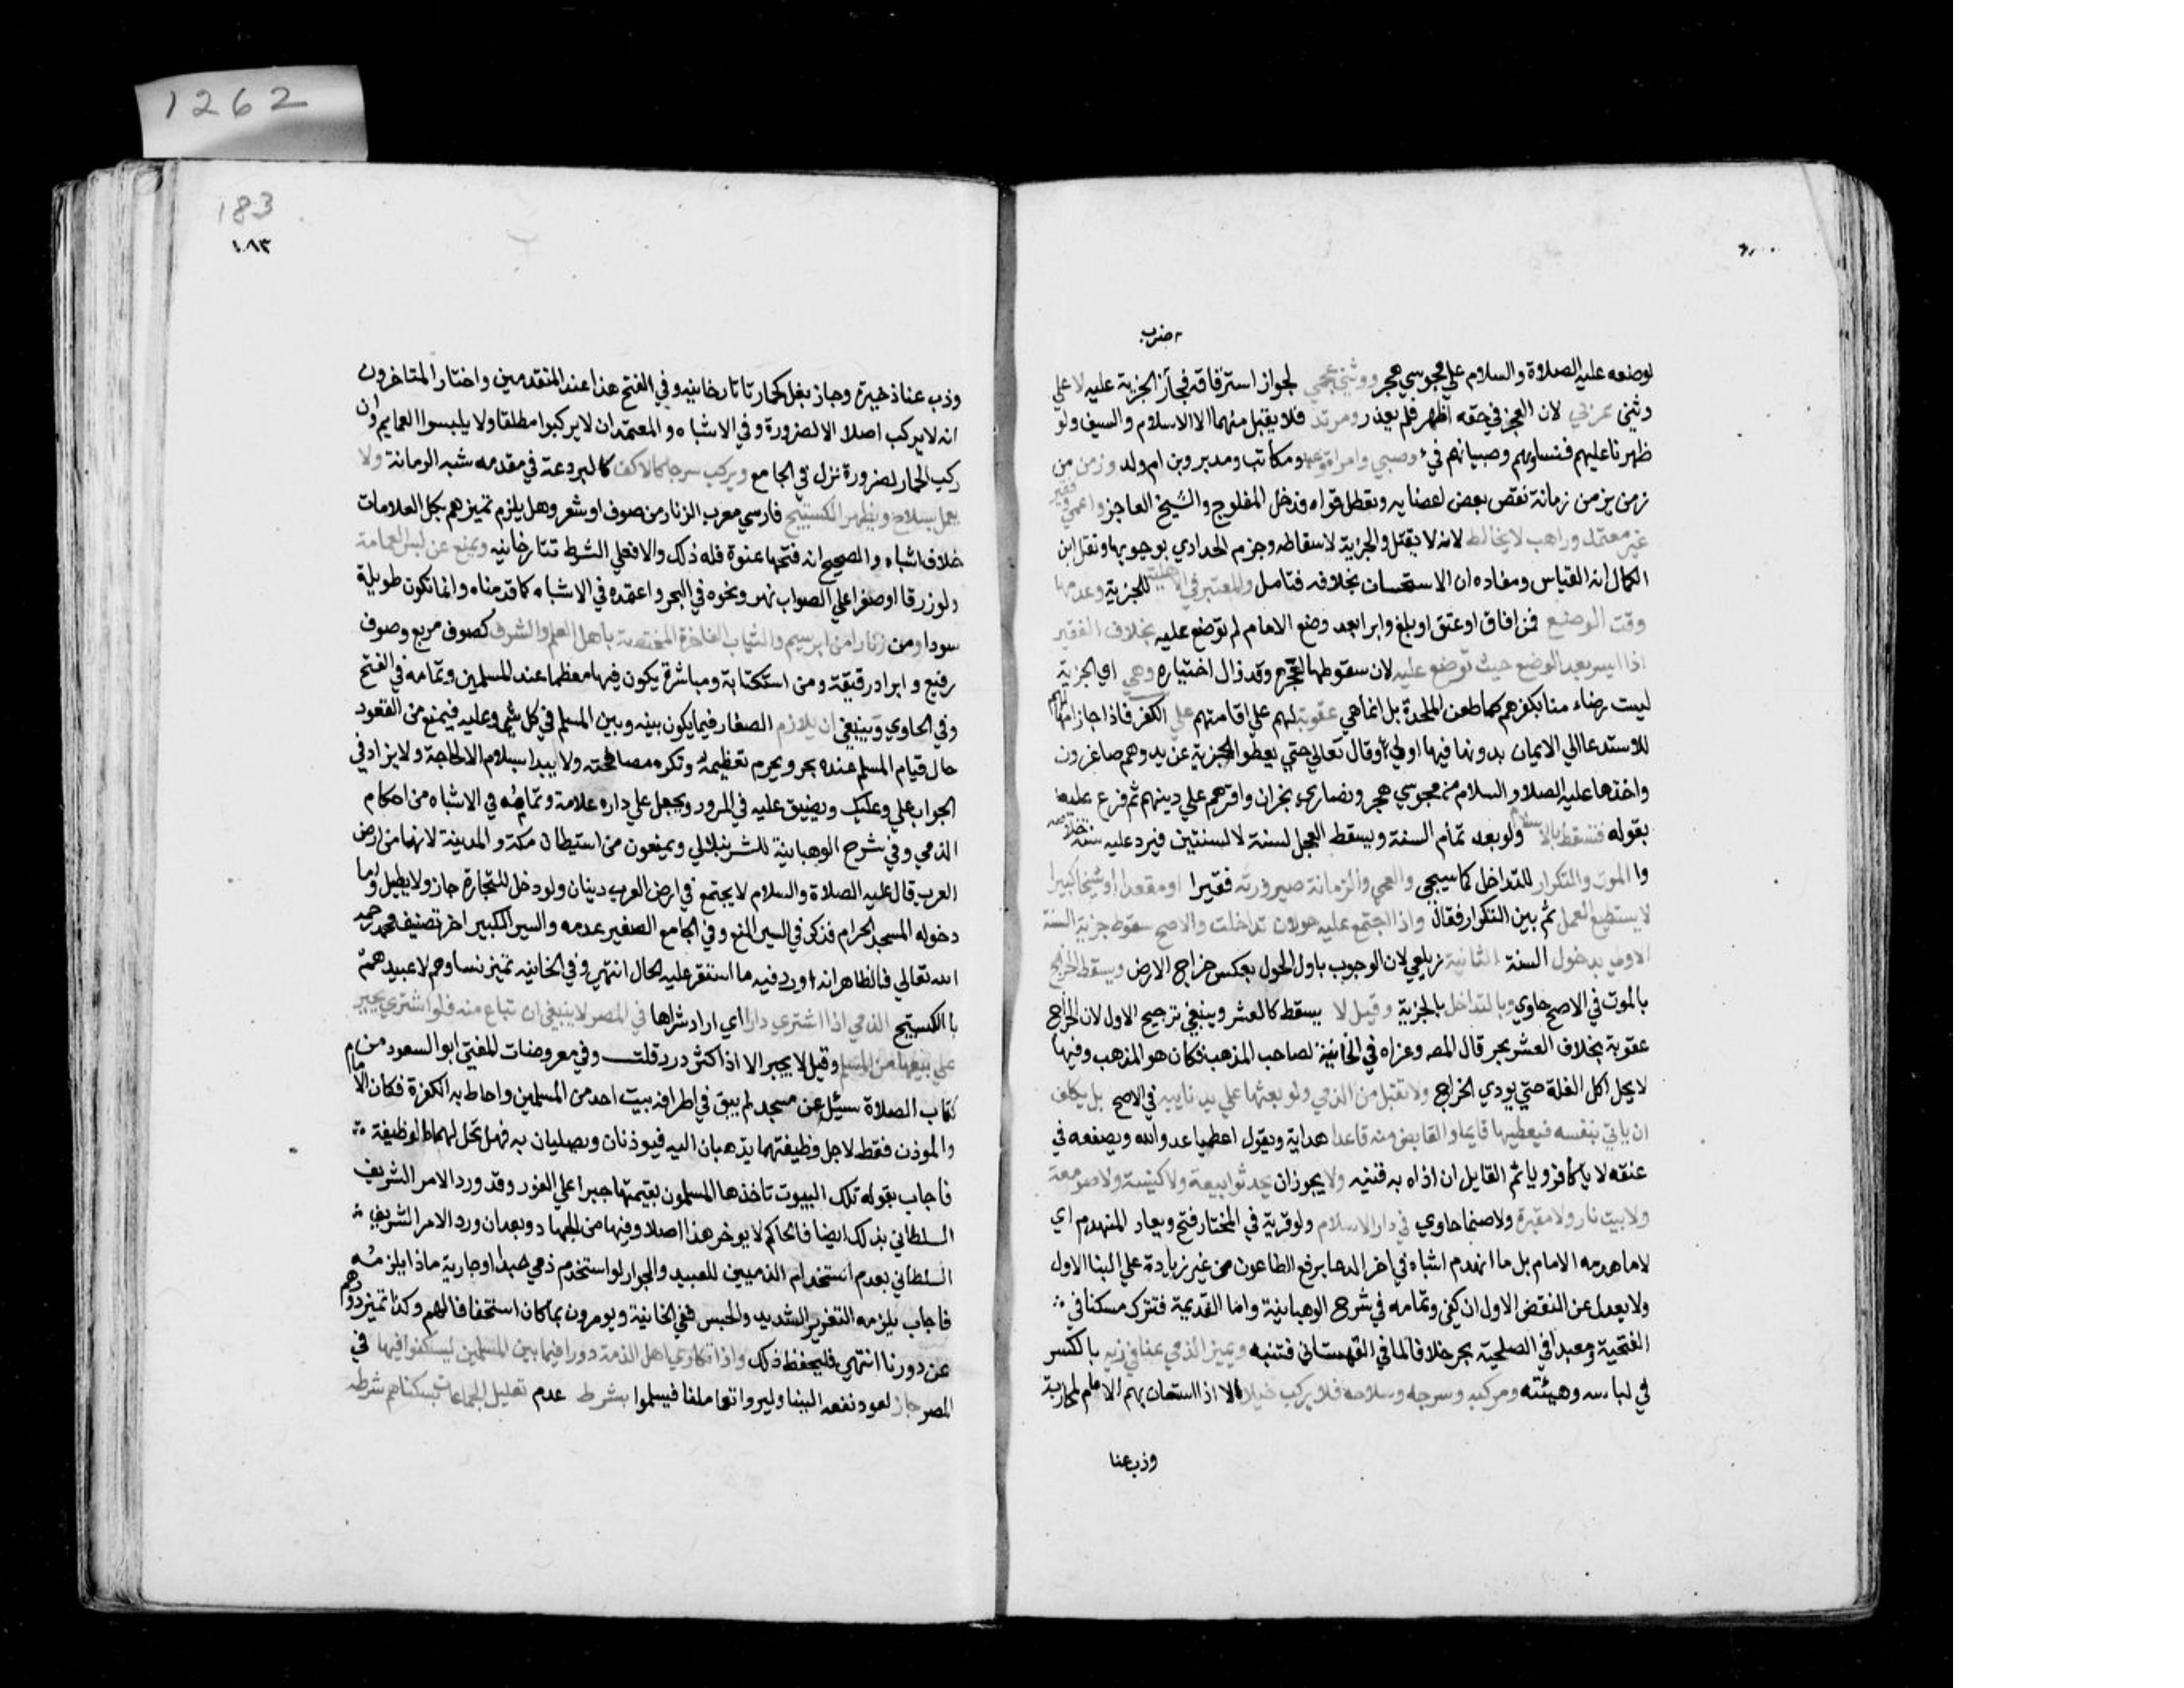 1262
183
١٨٣
ضرب
لوضعه عليه الصلاة والسلام علي مجوسي هجر ووثني عجمي لجواز استرقاقه فجاز الجزية عليه لا علي
وثني عربي لان العجز في حقه اظهر فلم يعذر ومرتد فلا يقبل منهما الا الاسلام والسيف ولو
ظهرنا عليهم فنساوهم وصبيانهم فيء وصبي وامراة وعبد ومكاتب ومدبر وبن ام ولد وزمن من
زمن يزمن زمانة نقص بعض اعضايه وتعطل قواه فدخل المفلوج والشيخ العاجز واعمي وفقير
غير معتمل وراهب لا يخالط لانه لا يقتل والجزية لاسقاطه وجزم الحدادي بوجوبها ونقل ابن
الكمال انه القياس ومفاده ان الاستحسان بخلافه فتامل والمعتبر في الاهلية للجزية وعدمها
وقت الوضع فمن افاق اوعتق اوبلغ وابرا بعد وضع الامام لم توضع عليه بخلاف الفقير
اذا ايسر بعد الوضع حيث توضع عليه لان سقوطها لعجزه وقد زال اختيار وهي اي الجزية
ليست رضاء منا بكفرهم كما طعن الملحدة بل انما هي عقوبة لهم علي اقامتهم علي الكفر فاذا جاز امهالهم
للاستدعا الي الايمان بدونها فيها اولي وقال تعالي حتي يعطوا الجزية عن يد وهم صاغرون
واخذها عليه الصلاة والسلام من مجوسي هجر ونصاري نجران واقرهم علي دينهم ثم فرع عليه
بقوله فتسقط بالاسلام ولو بعد تمام السنة ويسقط المعجل لسنة لا لسنتين فيرد عليه سنة خلاصه
وا الموت والتكرار للتداخل كما سيجي والعمي والزمانة صيرورته فقيرا او مقعدا او شيخا كبيرا
لا يستطيع العمل ثم بين التكرار فقال واذا اجتمع عليه حولان تداخلت والاصح سقوط جزية السنة
الاولي بدخول السنة الثانية زيلعي لان الوجوب باول الحول بعكس خراج الارض ويسقط الخراج
بالموت في الاصح حاوي وبالتداخل بالجزية وقيل لا يسقط كالعشر وينبغي ترجيح الاول لان الخراج
عقوبة بخلاف العشر بحر قال المصه وعزاه في الخانية لصاحب المذهب فكان هو المذهب وفيها
لا يحل اكل الغلة حتي يودي الخراج ولا تقبل من الذمي ولو بعثها علي يد نايبه في الاصح بل يكلف
ان ياتي بنفسه فيعطيها قايما والقابض منه قاعدا هداية ويقول اعطيا عدو الله ويصفعه في
عنقه لا ياكافر وياثم القايل ان اذاه به قنيه ولا يجوز ان يحدثوا بيعة ولا كنيسة ولا صومعة
ولا بيت نار ولا مقبرة ولا صنما حاوي في دار الاسلام ولو قرية في المختار فتح ويعاد المنهدم اي
لا ما هدمه الامام بل ما انهدم اشباه في اخر الدعا برفع الطاعون من غير زيادة علي البنا الاول
ولا يعدل عن النقض الاول ان كفي وتمامه في شرح الوهبانية واما القديمة فتترك مسكنا في
الفتحية ومعبدا في الصلحية بحر خلافا لما في القهستاني فتنبه ويميز الذمي عنا في زيه بالكسر
في لباسه وهيئته ومركبه وسرجه وسلاحه فلا يركب خيلا الا اذا استعان بهم الامام لمحاربة
وذب عنا
وذب عنا ذخيرة وجاز بغل كحمار تاتارخانيه وفي الفتح هذا عند المتقدمين واختار المتاخرون
انه لا يركب اصلا الا لضرورة وفي الاشباه والمعتمد ان لا يركبوا مطلقا ولا يلبسوا العمايم وان
ركب الحمار لضرورة نزل في الجامع ويركب سرجا كالاكف كالبردعة في مقدمه شبه الرمانة ولا
يعمل بسلاح ويظهر الكستيج فارسي معرب الزنار من صوف او شعر وهل يلزم تميزهم بكل العلامات
خلاف اشباه والصحيح انه فتحها عنوة فله ذلك والا فعلي الشرط تتارخانيه ويمنع عن لبس العمامة
ولو زرقا او صفرا علي الصواب نهر ونحوه في البحر واعتمده في الاشباه كما قدمناه وانما تكون طويلة
سودا ومن زنارا من ابرسيم والثياب الفاخرة المختصة باهل العلم والشرف كصوف مربع وصوف
رفيع وابراد رقيقة ومن استكتابة ومباشرة يكون فيها معظما عند المسلمين وتمامه في الفتح
وفي الحاوي وينبغي ان يلازم الصغار فيما يكون بينه وبين المسلم في كل شي وعليه فيمنع من القعود
حال قيام المسلم عنده بحر ويحرم تعظيمه وتكره مصافحته ولا يبدا بسلام الا لحاجة ولا يزاد في
الجواب علي وعليك ويضيق عليه في المرور ويجعل علي داره علامة وتمامه في الاشباه من احكام
الذمي وفي شرح الوهبانية للشرنبلالي ويمنعون من استيطان مكة والمدينة لانهما من ارض
العرب قال عليه الصلاة والسلام لا يجتمع في ارض العرب دينان ولو دخل للتجارة جاز ولا يطيل واما
دخوله المسجد الحرام فذكر في السير المنع وفي الجامع الصغير عدمه والسير الكبير اخر تصنيف محمد رحمه
الله تعالي فالظاهر انه اورد فيه ما استقر عليه الحال انتهي وفي الخانيه تميز نساوهم لا عبيدهم
با الكستيج الذمي اذا اشتري دارا اي اراد شراها في المصر لا ينبغي ان تباع منه فلو اشتري يجبر
علي بيعها من المسلم وقيل لا يجبر الا اذا كثر درر قلت وفي معروضات المفتي ابو السعود من
كتاب الصلاة سئل عن مسجد لم يبق في اطرافه بيت احد من المسلمين واحاط به الكفرة فكان الامام
والموذن فقط لاجل وظيفتهما يذهبان اليه فيوذنان ويصليان به فهل تحل لهما الوظيفة
فاجاب بقوله تلك البيوت تاخذها المسلمون بقيمتها جبرا علي الفور وقد ورد الامر الشريف
السلطاني بذلك ايضا فالحاكم لا يوخر هذا اصلا وفيها من الجهاد وبعد ان ورد الامر الشريف
السلطاني بعدم استخدام الذميين للعبيد والجوار لو استخدم ذمي عبدا او جارية ماذا يلزمه
فاجاب يلزمه التعزير الشديد والحبس ففي الخانية ويومرون بما كان استخفافا لهم وكذا تميز دورهم
عن دورنا انتهي فليحفظ ذلك واذا تكاري اهل الذمة دورا فيما بين المسلمين ليسكنوا فيها في
المصر جاز لعود نفعه الينا وليروا تعاملنا فيسلموا بشرط عدم تقليل الجماعات بسكناهم شرطه